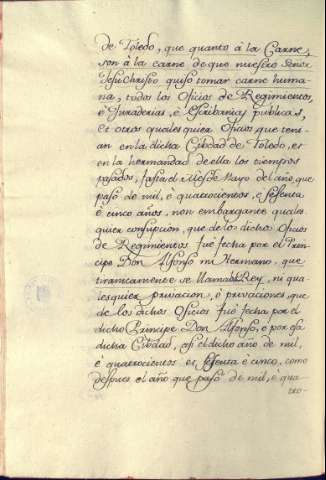 de Toledo, que quanto â la Carne,
son â la carne de que nuestro Señor
Jesu Christo quiso tomar carne huma-
na, todos los Oficios de Regimientos,
è Juraderias, è Escribanias publicas,
et otros quales quiera Oficios que teni-
an en la dicha Cibdad de Toledo, et
en la hermandad de ella los tiempos
pasados, fasta el Mes de Mayo del año, que
pasó de mil, è quatrocientos, è sesenta
è cinco años, non embargante quales
quier que de los dichos Oficios
de Regimientos fué fecha por el Prin-
cipe Don Alfonso mi Hermano, que
tiranicamente se llamaba Rey, ni qua
lesquier privacion, ò privaciones, que
de los dichos Oficios fué fecha por el
dicho Principe Don Alfonso, è por esa
dicha Cibdad, asi el dicho año de mil,
è quatrocientos et sesenta è cinco, como
despues el año que pasó de mil, è qua
tro-